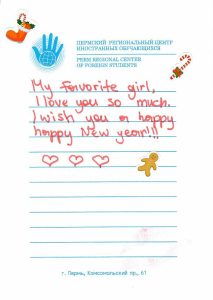 ПЕРМСКИЙ РЕГИОНАЛЬНЫЙ ЦЕНТР
ИНОСТРАННЫХ ОБУЧАЮЩИХСЯ
PERM REGIONAL CENTER
OF FOREIGN STUDENTS
My favorite girl,
I love you so much.
I wish you a happy
happy New year!!!
г. Пермь, Комсомольский пр., 61